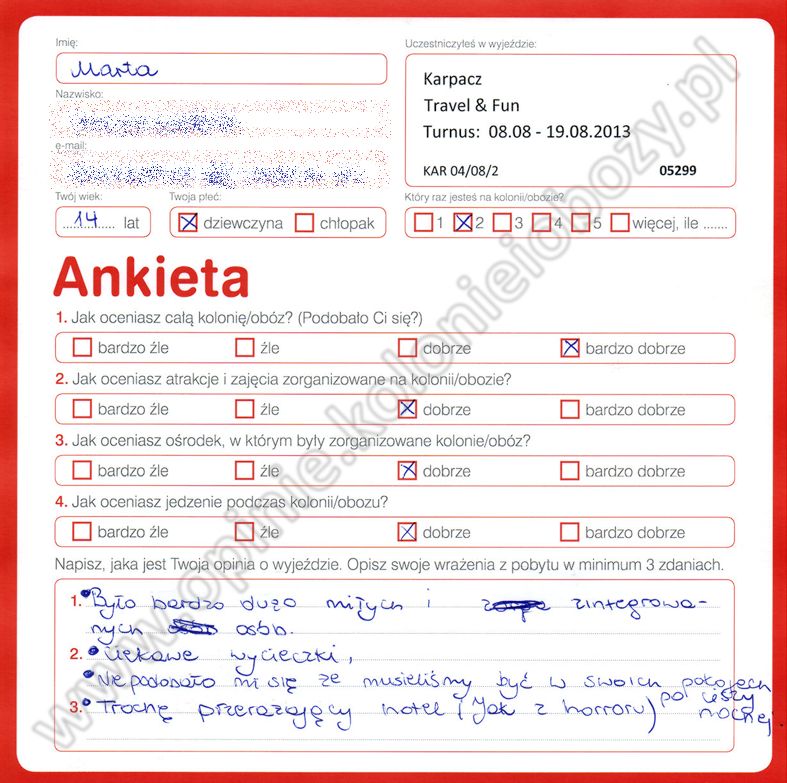 Imię:
Uczestniczyłeś w wyjeździe:
Marta
Karpacz
Travel & Fun
Turnus: 08.08 - 19.08.2013
KAR 04/08/2 05299
Nazwisko:
e-mail:
Twój wiek: Twoja płeć: Który raz jesteś na kolonii/obozie?
14 lat dziewczyna chłopak 1 2 3 4 5 więcej, ile .......
Ankieta
1. Jak oceniasz całą kolonię/obóz? (Podobało Ci się?)
bardzo źle źle dobrze bardzo dobrze
2. Jak oceniasz atrakcje i zajęcia zorganizowane na kolonii/obozie?
bardzo źle źle dobrze bardzo dobrze
3. Jak oceniasz ośrodek, w którym były zorganizowane kolonie/obóz?
bardzo źle źle dobrze bardzo dobrze
4. Jak oceniasz jedzenie podczas kolonii/obozu?
bardzo źle źle dobrze bardzo dobrze
Napisz, jaka jest Twoja opinia o wyjeździe. Opisz swoje wrażenia z pobytu w minimum 3 zdaniach.
1. • Było bardzo dużo miłych i zintegrowa-
nych osób.
2. • Ciekawe wycieczki,
• Nie podobało mi się że musieliśmy być w swoich pokojach
po ciszy
3. • Trochę przerażający hotel (Jak z horroru) nocnej
www.opinie.kolonieiobozy.pl